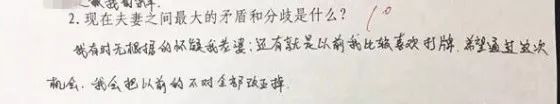 2. 现在夫妻之间最大的矛盾和分歧是什么? 10
我有时无根据的怀疑我老婆;还有就是以前我比较喜欢打牌.希望通过这次
机会.我会把以前的不对全部改正掉.